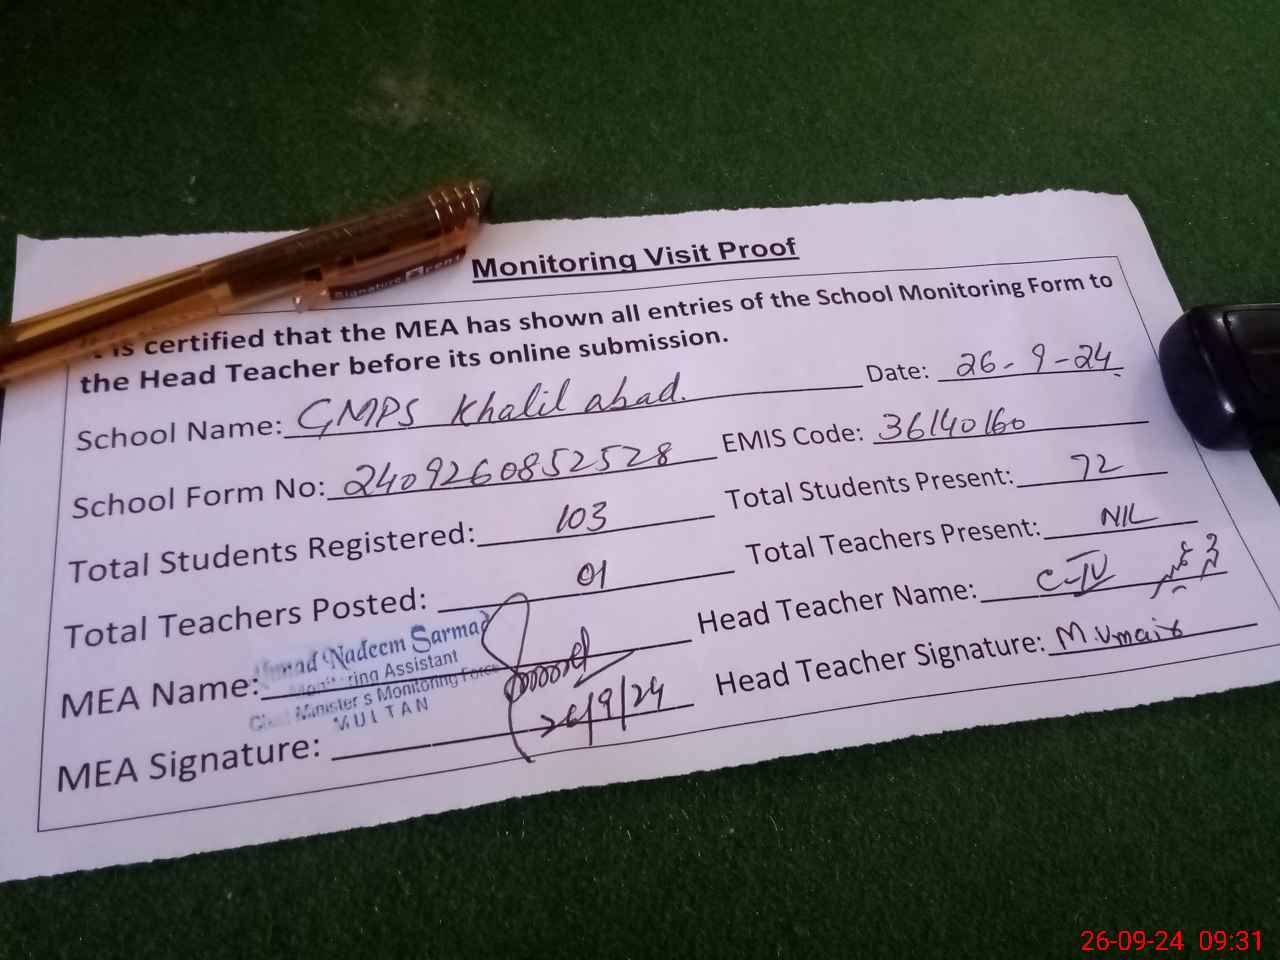 Signature
Monitoring Visit Proof
is certified that the MEA has shown all entries of the School Monitoring Form to
the Head Teacher before its online submission.
School Name: GMPS Khalil abad. Date: 26-9-24
School Form No: 2409260852528 EMIS Code: 36140160
Total Students Registered: 103 Total Students Present: 72
Total Teachers Posted: 01 Total Teachers Present: NIL
MEA Name: Head Teacher Name: C-IV محمد عمیر
Nadeem Sarmad
Monitoring Assistant
Chief Minister's Monitoring Force
MULTAN
MEA Signature: 26/9/24 Head Teacher Signature: M. Umair
26-09-24 09:31